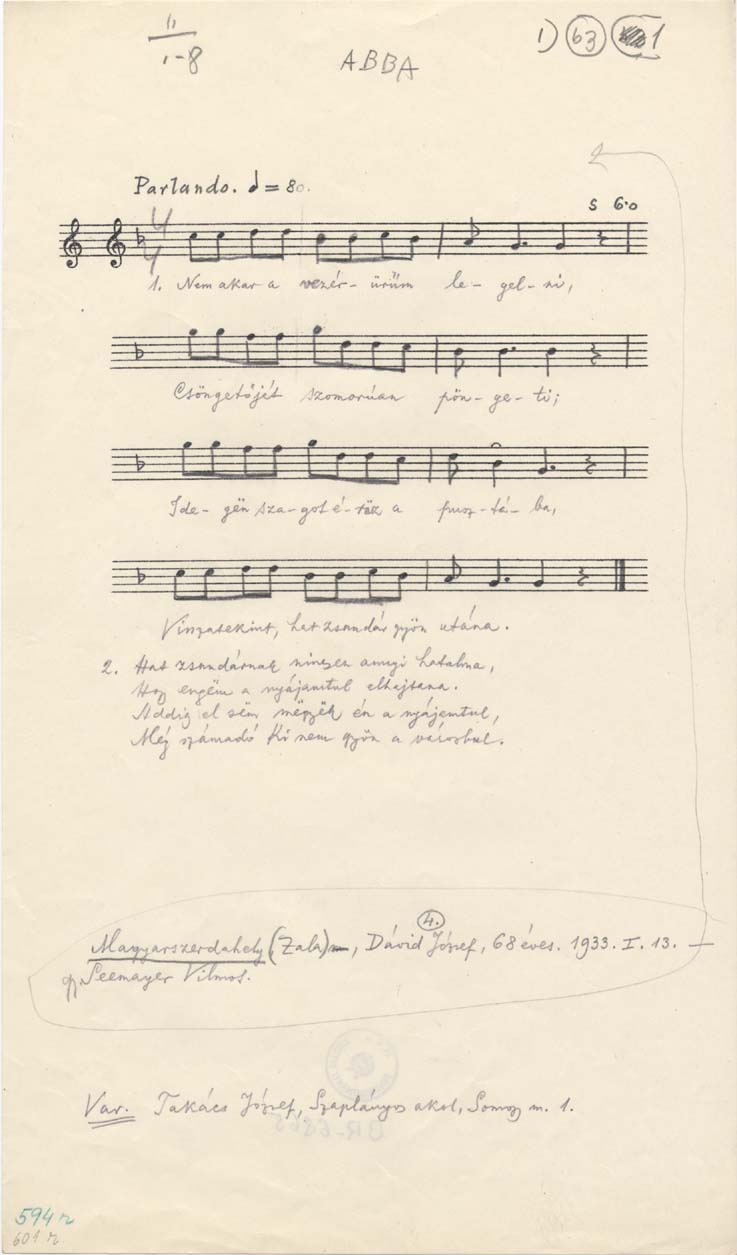 II
1-8
ABBA
1) 63 1
Parlando. = 80.
s 6·0
4
4
1. Nem akar a vezér- ürüm le- gel- ni,
Csöngetőjét szomorúan pön- ge- ti;
Ide- gën sza- got é- röz a pusz- tá- ba,
Visszatekint, hat zsandár gyön utána.
2. Hat zsandárnak ninszen annyi hatalma,
Hogy engëm a nyájamtul elhajtana.
Addig el sëm mëgyëk én a nyájemtul,
Míg számadó ki nem gyön a városbul.
4.
Magyarszerdahely (Zala), Dávid József, 68 éves. 1933. I. 13. —
gy. Seemayer Vilmos.
Var. Takács József, Szaplányos akol, Somogy m. 1.
594 r
601 r.